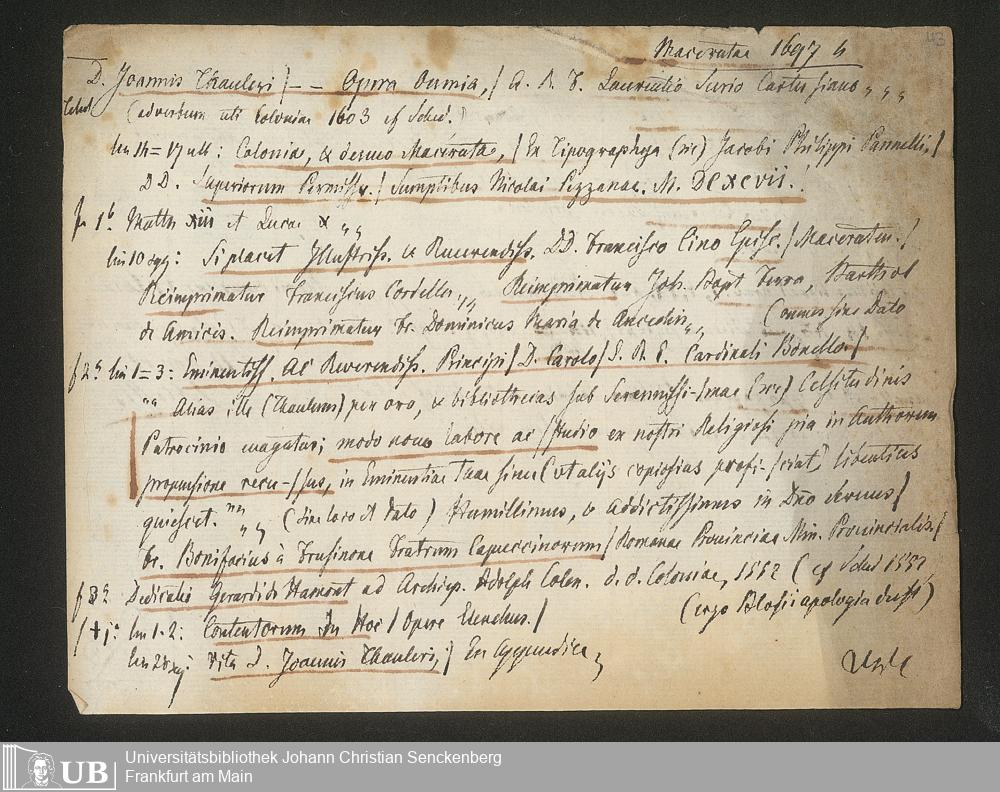 Maceratae 1697 4
43
D. Joannis Thauleri / – – Opera Omnia, / A. R. F. Laurentio Surio Cartusiano „ „ „
(adverbum uti Coloniae 1603 cf Sched.
lin 16 = 17 ult : Colonia, & denuo Macerata, / Ex Tipographya (sic) Jacobi Philippi Pannelli. /
DD. Superiorum Permissu. / Sumptibus Nicolai Pezzanae. M. DCXCVII.
f 1b Matth xiii et Lucae x „ „
lin 10 sqq : Si placet Illustriss. & Reverendiss. DD. Francisco Cino Episc. / Maceraten. /
Reimprimatur Franciscus Cordella „ „ Reimprimatur Joh. Bapt
de Amicis. Reimprimatur Fr. Dominicus Maria de Anconis „ „ (omnes sine Dato
f 2a lin 1 = 3 : Eminentiss. Ac Reverendiss. Principi / D. Carolo / S. R. E. Cardinali Bonello. /
„ Alias ille (Thaulerus) per ora, & bibliothecas sub Serenissi-/mae (sic) Celsitudinis
Patrocinio vagatur; modo novo labore ac / studio ex nostri Religiosi pia in Authorem
propensione recu-/sus, in Eminentiae Tuae sinu (ut alijs copiosius profi-/ciat) libentius
quiescet. „ „ (Sine loco et dato) Humillimus, & Addictissimus in Dno Servus /
Fr. Bonifacius à Frusinone Fratrum Capuccinorum / Romanae Provinciae Min. Provincialis. /
f 3a Dedicatio Gerardi Hamont ad Archiep. Adolph Colon. d. d. Coloniae, 1552 (cf Sched 1552,
(ergo Blosii apologia deest)
lin 1-2 : Contentorum In Hoc / Opere Elenchus. /
lin 28 : Vita D. Joannis Thauleri, / Ex Appendice
UB
Universitätsbibliothek Johann Christian Senckenberg
Frankfurt am Main